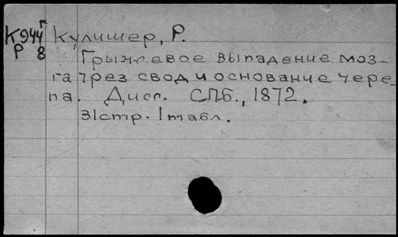 К944г Кулишер, Р.
Р8 Грыжевое выпадение моз-
га чрез свод и основание чере-
па. Дисс. СПб., 1872.
31стр. 1табл.